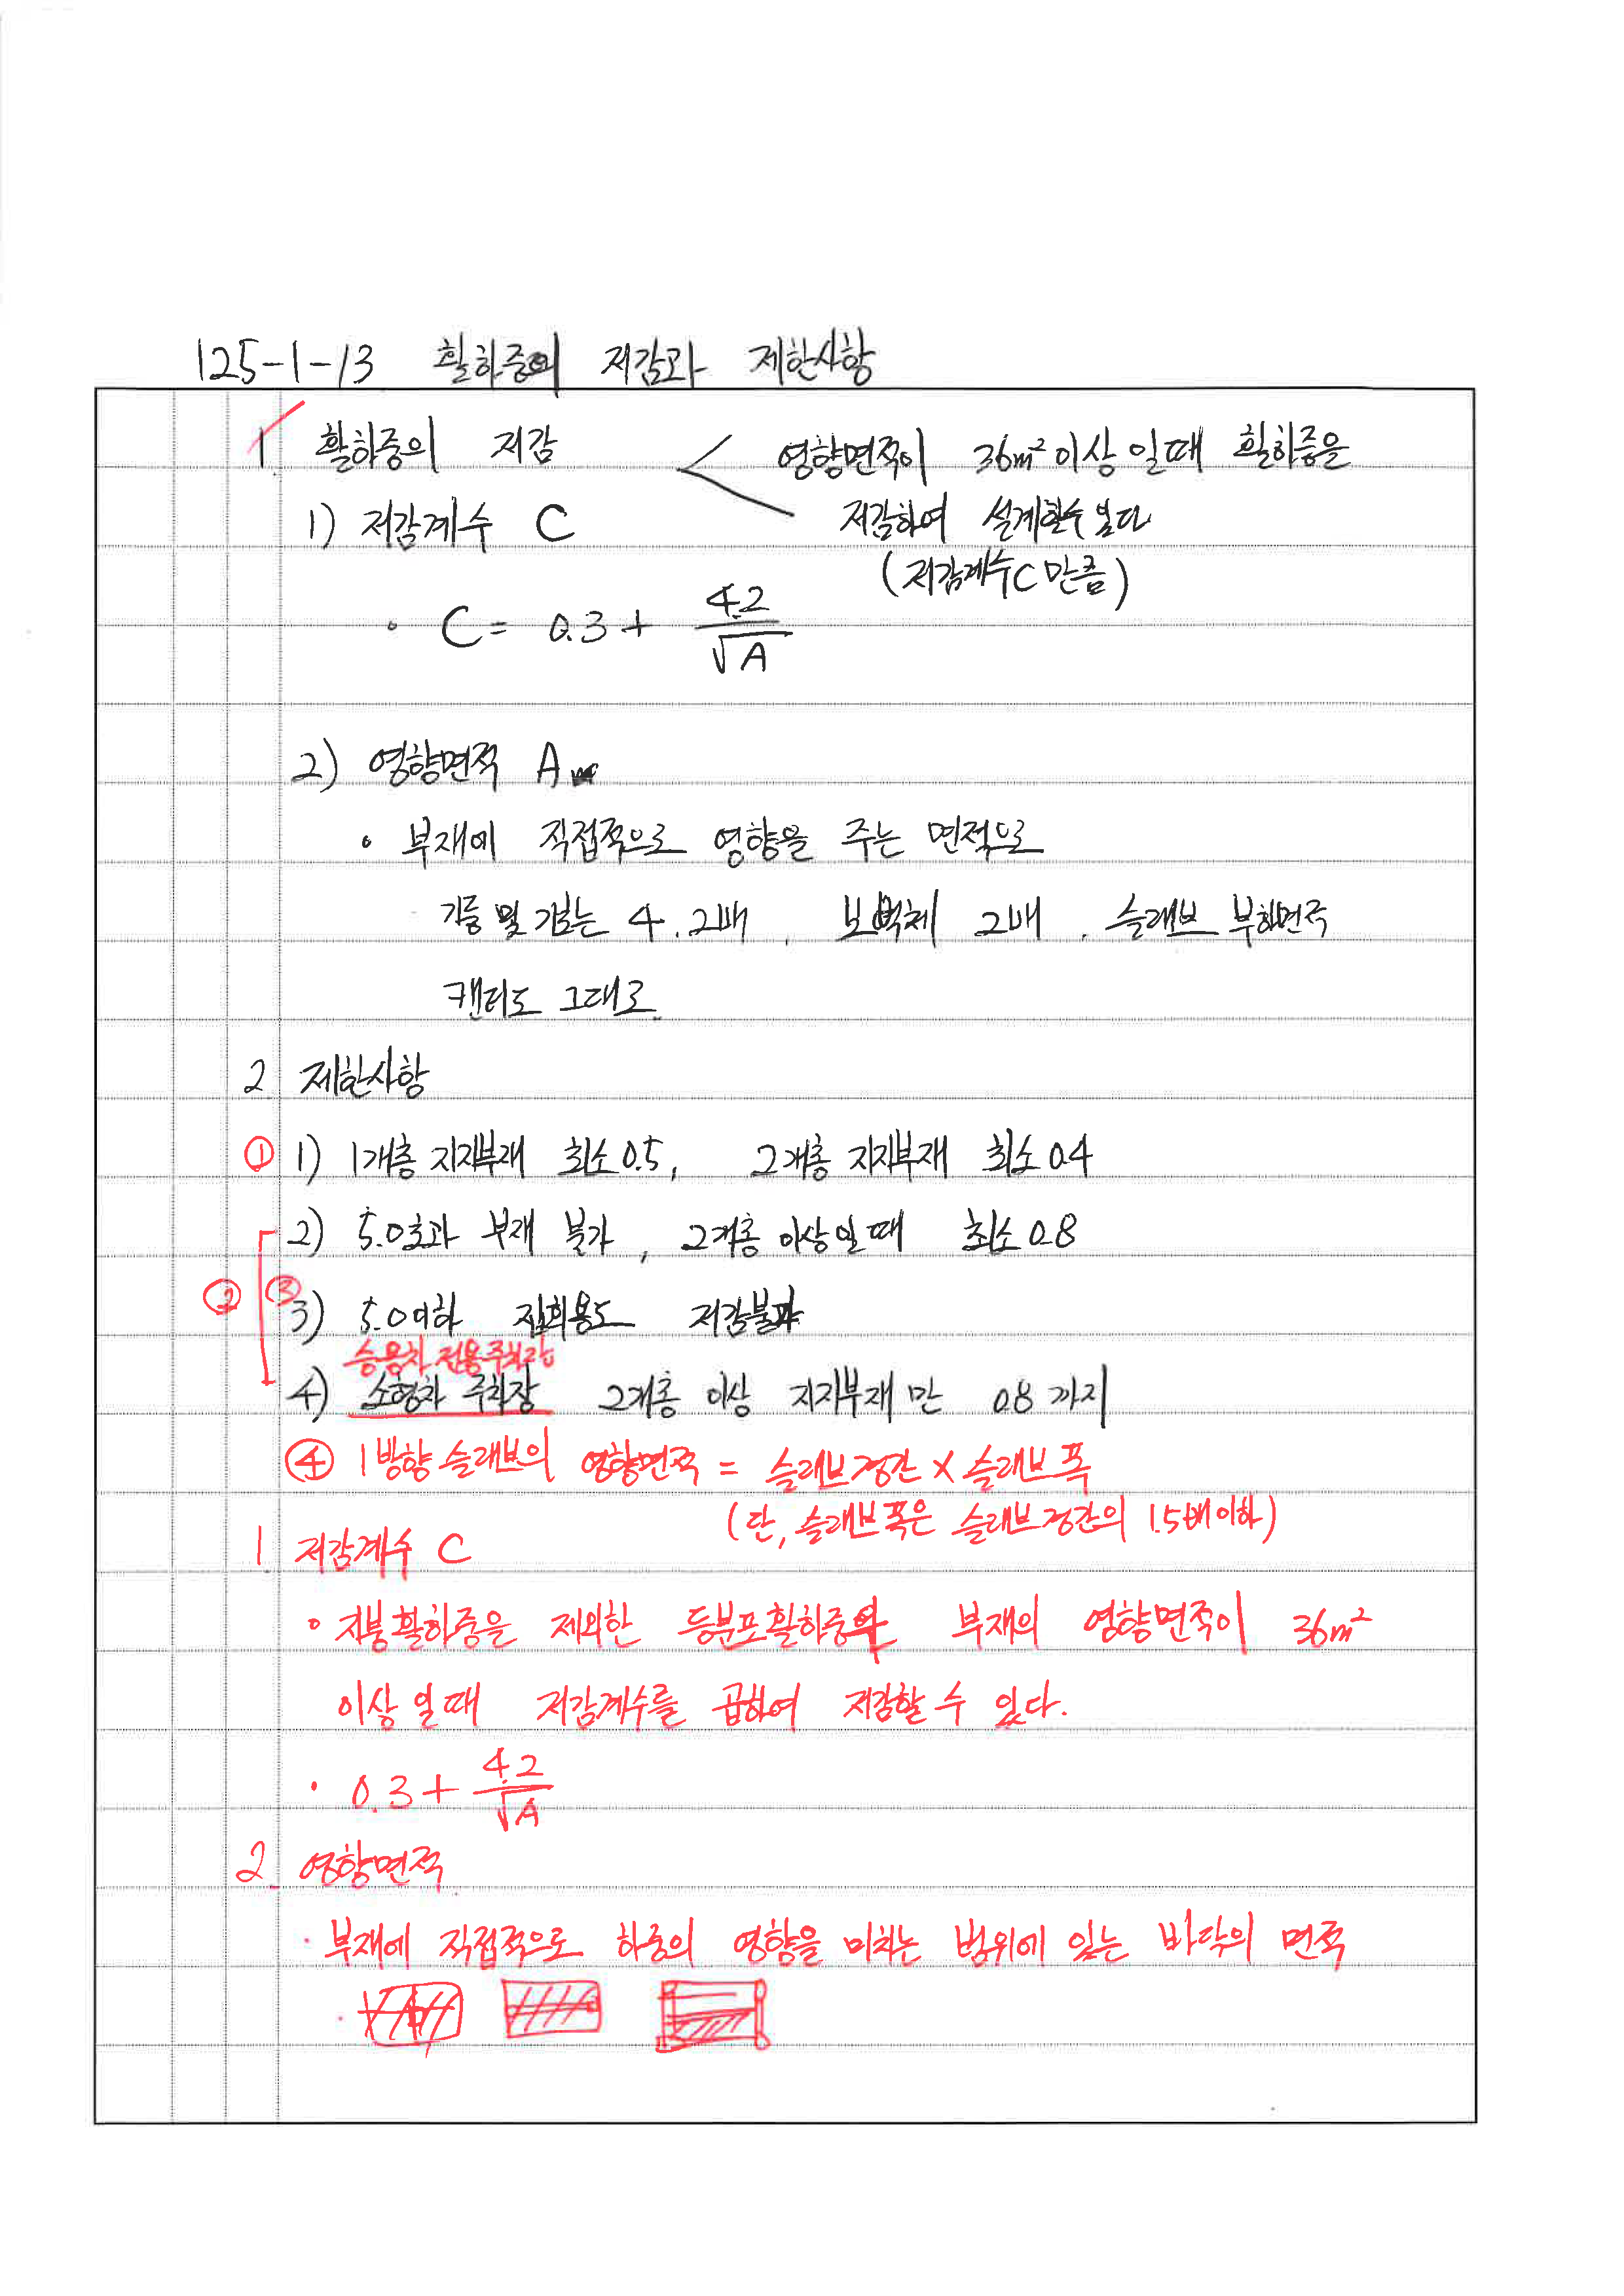 125-1-13 활하중의 저감과 제한사항
1 활하중의 저감 < 영향면적이 36m² 이상 일때 활하중을
1) 저감계수 C 저감하여 설계할수 있다
(저감계수 C 만큼)
• C = 0.3 + 4.2/√A
2) 영향면적 A
• 부재에 직접적으로 영향을 주는 면적으로
기둥 및 기초는 4.2배, 보 벽체 2배, 슬래브 부하면적
캔티도 그대로.
2 제한사항
① 1) 1개층 지지부재 최소 0.5, 2개층 지지부재 최소 0.4
2) 5.0초과 부재 불가, 2개층 이상일때 최소 0.8
② ③ 3) 5.0이하 집회용도 저감불가
승용차 전용주차장
4) 소형차 주차장 2개층 이상 지지부재 만 0.8 까지
④ 1방향 슬래브의 영향면적 = 슬래브경간 × 슬래브 폭
(단, 슬래브 폭은 슬래브경간의 1.5배이하)
1 저감계수 C
• 지붕활하중을 제외한 등분포활하중의 부재의 영향면적이 36m²
이상 일때 저감계수를 곱하여 저감할 수 있다.
• 0.3 + 4.2/√A
2. 영향면적
• 부재에 직접적으로 하중의 영향을 미치는 범위에 있는 바닥의 면적